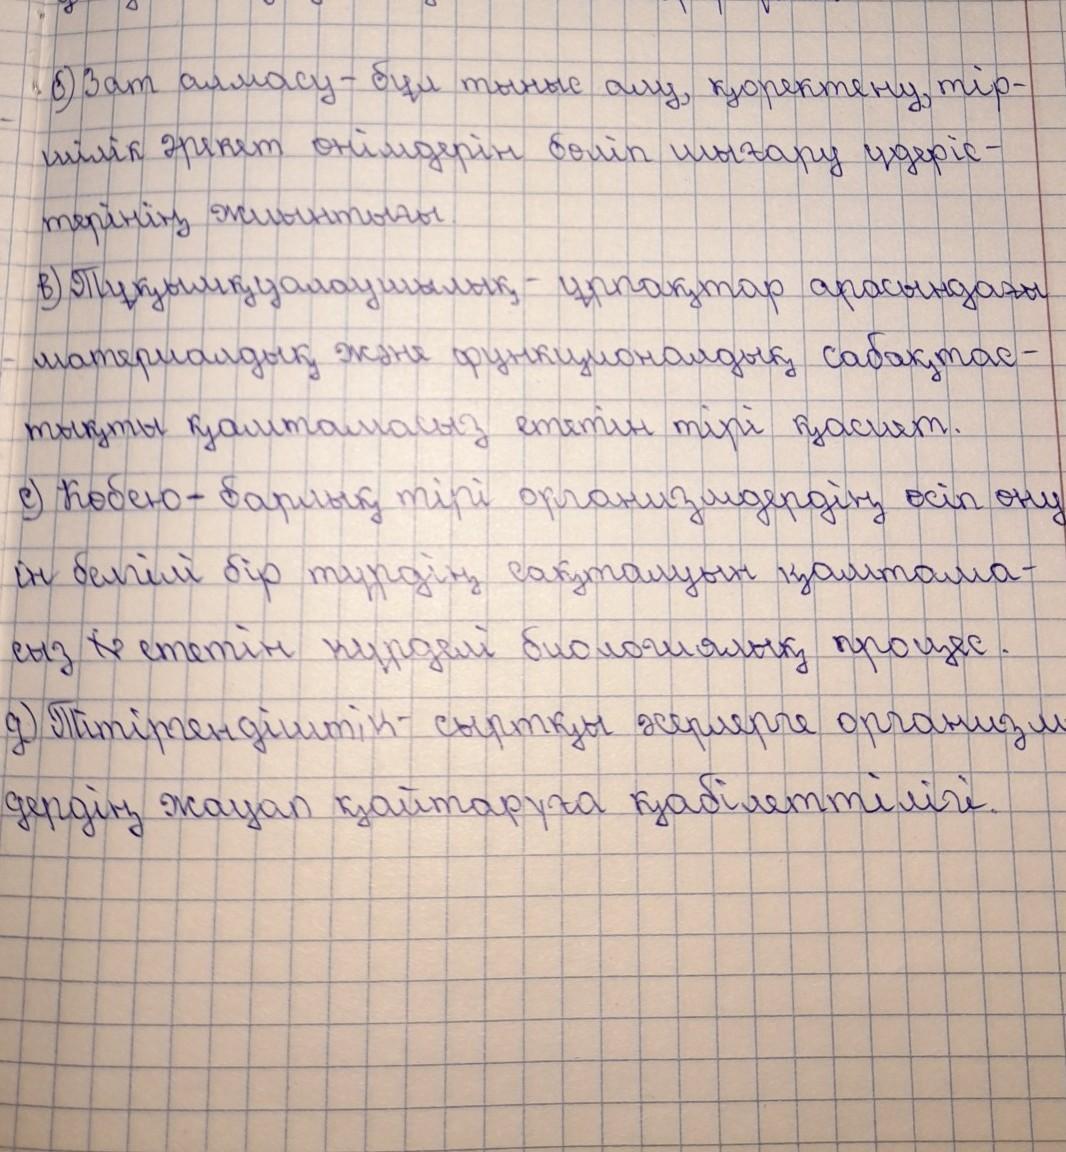 б) Зат алмасу - бұл тыныс алу, қоректену, тір-
шілік әрекет өнімдерін бөліп шығару үдеріс-
терінің жиынтығы.
в) Тұқымқуалаушылық - ұрпақтар арасындағы
материалдық және функционалдық сабақтас-
тықты қамтамасыз ететін тірі қасиет.
с) Көбею - барлық тірі организмдердің өсіп өну
ін белгілі бір түрдің сақталуын қамтама-
сыз ететін күрделі биологиялық процес.
д) Тітіргендіштік - сыртқы әсерлерге организм
дердің жауап қайтаруға қабілеттілігі.